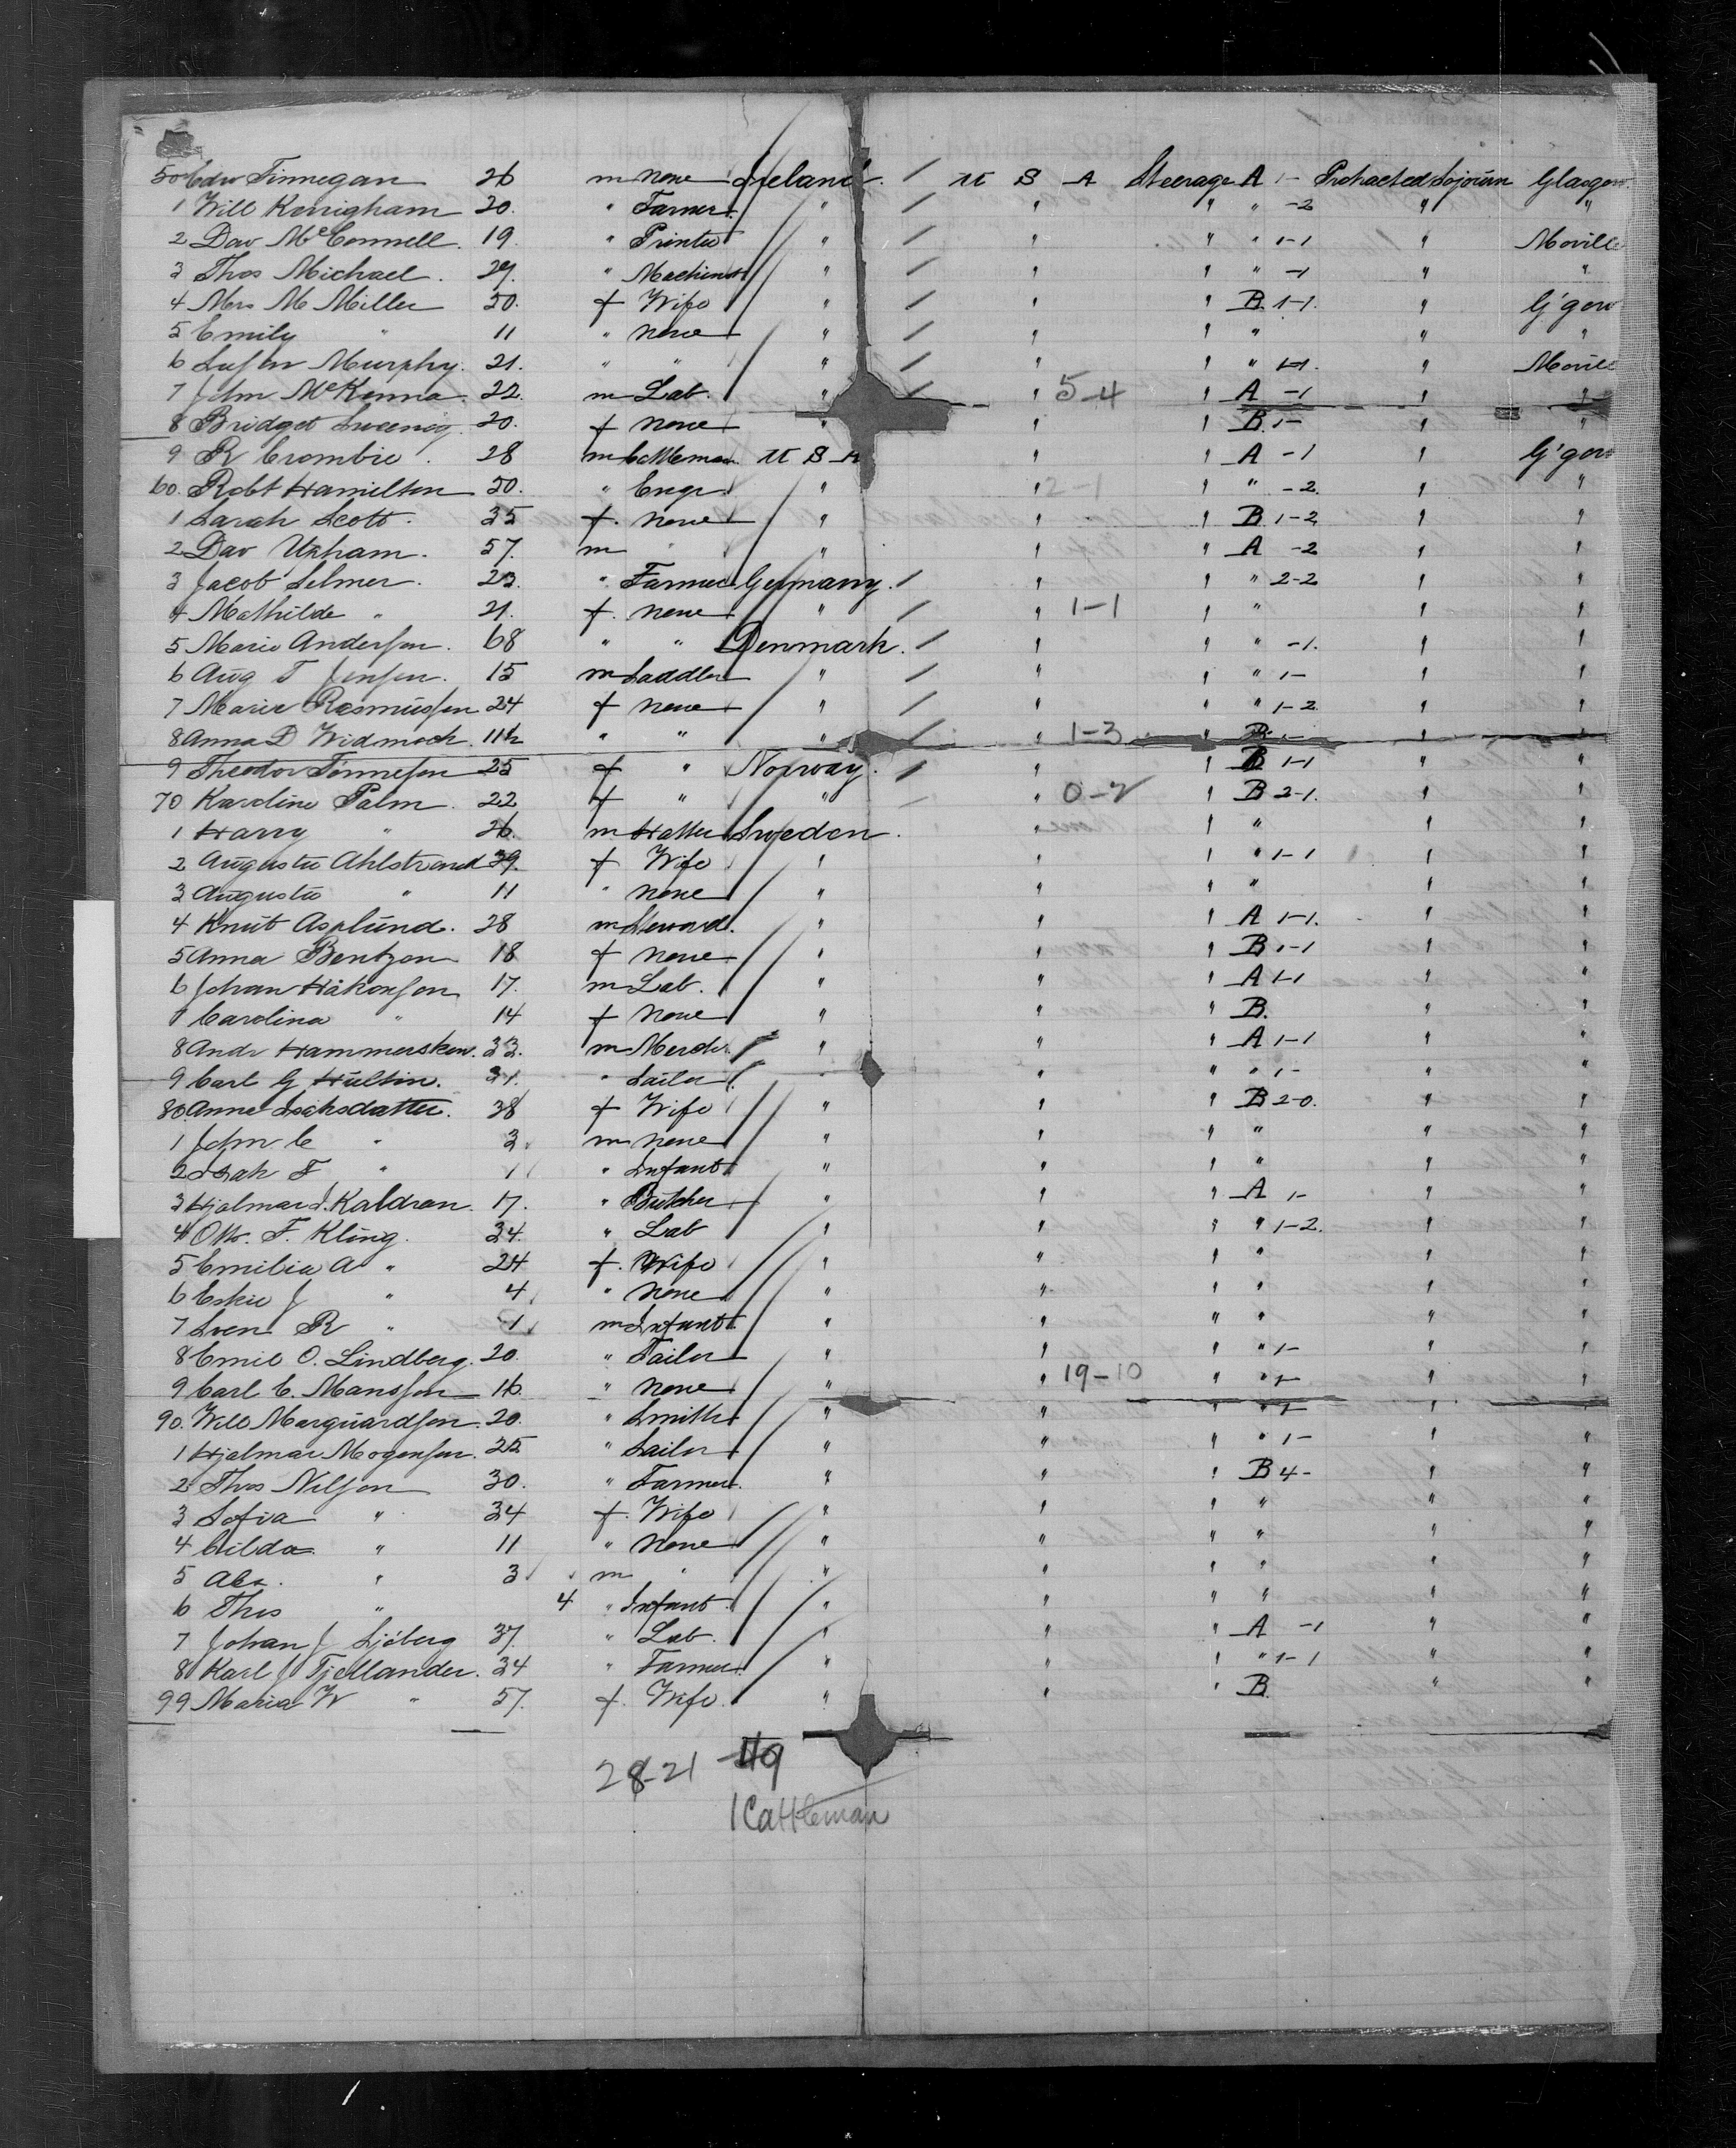 50 Edw Finnegan 26 m none Ireland / U S A Steerage A 1- Protracted Sojourn Glasgow
1 Will Kerrigham 20. " Farmer " / " " " -2 " "
2 Dav McConnell. 19. " Printer " / " " " 1-1 " Moville
3 Thos Michael. 29. " Machinist " / " " " -1 " "
4 Mrs M Miller 50. f Wife " / " " B. 1-1. " G'gow
5 Emily " 11 " none " / " " " " "
6 Murphy. 21. " " " / " " " 1-1. " Moville
7 John McKenna. 22. m Lab. " / " 5-4 " A -1 " "
8 Bridget Sweeney. 20. f none " " " B. 1- " "
9 R Crombie. 28 m Cattleman U S A " " A -1 " G'gow
60. Robt Hamilton 50. " Engr. " " 2-1 " " -2. " "
1 Sarah Scott. 35 f. none " " " B 1-2 " "
2 Dav Upham. 57. m " " " " A -2 " "
3 Jacob Selmer. 23. " Farmer Germany. / " " " 2-2 " "
4 Mathilde " 21. f. none " / " 1-1 " " " "
5 Marie Anderson. 68 " " Denmark. / " " " -1. " "
6 Aug T Jensen. 15 m Saddler " / " " " 1- " "
7 Marie Rasmussen 24 f none " / " " " 1-2 " "
8 Anna D Widmoch. 11 " " " / " 1-3 " B. 1- " "
9 Theodor Tonnesen 25 f " Norway. / " " B 1-1 " "
70 Karoline Palm. 22 f " " " 0-2 " B 2-1. " "
1 Harry " 26. m Hatter Sweden. " " " " "
2 Augusta Ahlstrand 39. f Wife " " " " 1-1 " "
3 Augusta " 11 " none " " " " " "
4 Knut Asplund. 28 m Steward. " " " A 1-1. " "
5 Anna Bentzon 18 f none " " " B 1-1 " "
6 Johan Håkonson 17. m Lab. " " " A 1-1 " "
7 Carolina " 14 f none " " " B. " "
8 Andr Hammerskow. 33. m Merch. " " " A 1-1 " "
9 Carl G Hultin. 21. " Sailor " " " " 1- " "
80. Anna Isaksdatter. 38 f Wife " " " B 2-0. " "
1 John C " 3 m none " " " " " "
2 Isak F " 1 " Infant " " " " " "
3 Hjalmar J. Kaldran. 17. " Butcher " " " A 1- " "
4 Otto. F. Kling. 34. " Lab " " " " 1-2. " "
5 Emilia A " 24 f. Wife " " " " " "
6 J " 4 " none " " " " " "
7 Sven R " 1 m Infant " " " " " "
8 Emil O. Lindberg. 20. " Tailor " " " " 1- " "
9 Carl E. Mansson 16. " none " " 19-10 " " 1- " "
90. Will Marguardson. 20. " Smith " " " " 1- " "
1 Hjalmar Mogensen. 25 " Sailor " " " " 1- " "
2 Thos Nilson 30. " Farmer. " " " B 4- " "
3 Sofia " 34 f. Wife " " " " " "
4 Cilda " 11 " none " " " " " "
5 Alex. " 3 m " " " " " " "
6 Thos " 4 " Infant " " " " " "
7 Johan J Sjöberg 37. " Lab. " " " A -1 " "
8 Karl J Tjellander. 34 " Farmer. " " " " 1-1 " "
99 Maria W " 57. f. Wife. " " " B. " "
28-21 49
1 Cattleman